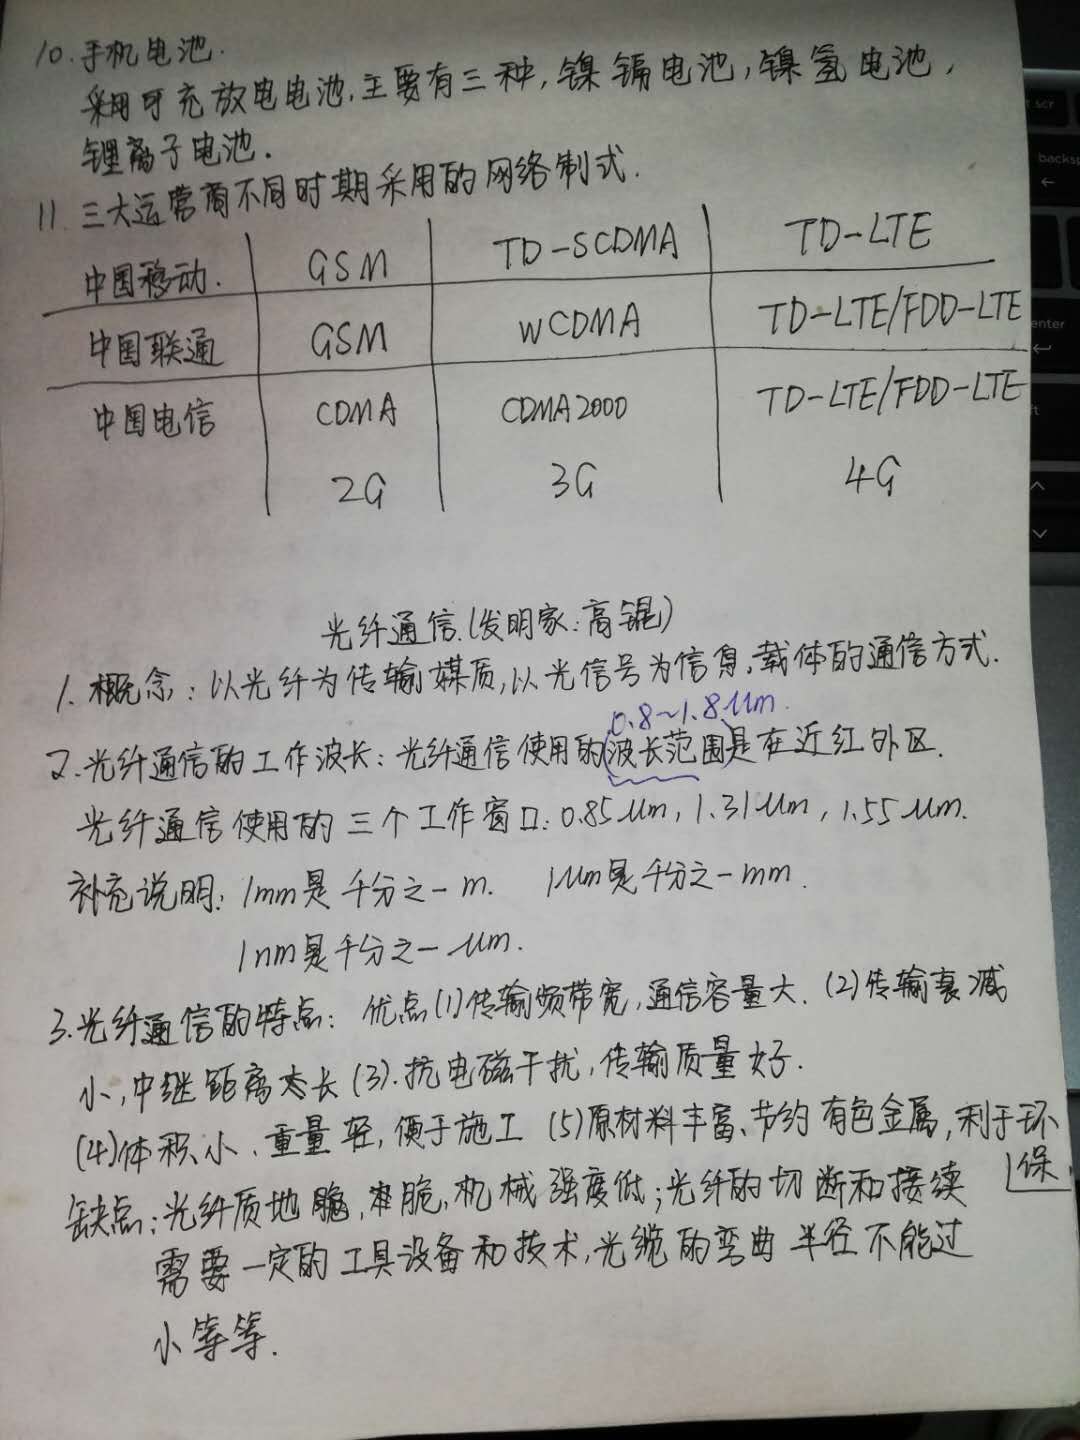 10.手机电池.
采用可充放电电池,主要有三种,镍镉电池,镍氢电池,
锂离子电池.
11.三大运营商不同时期采用的网络制式.
中国移动. GSM TD-SCDMA TD-LTE
中国联通 GSM WCDMA TD-LTE/FDD-LTE
中国电信 CDMA CDMA2000 TD-LTE/FDD-LTE
2G 3G 4G
光纤通信.(发明家:高锟)
1.概念:以光纤为传输媒质,以光信号为信息,载体的通信方式.
0.8~1.8μm.
2.光纤通信的工作波长:光纤通信使用的(波长范围)是在近红外区.
光纤通信使用的三个工作窗口:0.85μm,1.31μm,1.55μm.
补充说明:1mm是千分之一m. 1μm是千分之一mm.
1nm是千分之一μm.
3.光纤通信的特点: 优点(1)传输频带宽,通信容量大.(2)传输衰减
小,中继距离长(3).抗电磁干扰,传输质量好.
(4)体积小、重量轻,便于施工 (5)原材料丰富、节约有色金属,利于环
保.
缺点:光纤质地脆,机械强度低;光纤的切断和接续
需要一定的工具设备和技术,光缆的弯曲半径不能过
小等等.
scr
backsp
enter